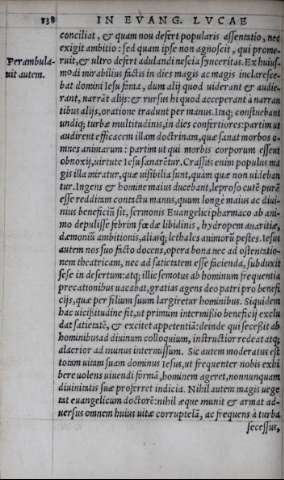 138 IN EVANG. LVCAE
conciliat, & quam nou deſert popularis aſſentatio, nec
exigit ambitio: ſed quam ipſe non agnoſcit, qui prome-
Perambula- ruit, & ultro deſert adulandi neſcia ſynceritas. Ex huiuſ-
uit autem. modi mirabilius ſictis in dies magis ac magis inclareſce-
bat domini Ieſu fama, dum alij quod uiderant & audie-
rant, narrāt alijs: & rurſus hi quod acceperant à narran
tibus alijs, oratione tradunt per manus. Itaq; confluebant
undiq; turbæ multitudinis, in dies confertiores: partim ut
audirent efficacem illam doctrinam, quæ ſanat morbos o-
mnes animarum: partim ut qui morbis corporum eſſent
obnoxij, uirtute Ieſu ſanarētur. Craſſus enim populus ma
gis illa miratur, quæ uiſibilia ſunt, quàm quæ non uidean
tur. Ingens & homine maius ducebant, leproſo cutē purā
eſſe redditam contactu manus, quum longe maius ac diui-
nius beneficiū ſit, ſermonis Euangelici pharmaco ab ani-
mo depuliſſe febrim fœdæ libidinis, hydropem auaritiæ,
dæmoniū ambitionis, aliasq; lethales animorū peſtes. Ieſus
autem nos ſuo facto docens, opera bona nec ad oſtentatio-
nem theatricam, nec ad ſatietatem eſſe facienda, ſubduxit
ſeſe in deſertum: atq; illic ſemotus ab hominum frequentia
precationibus uacabat, gratias agens deo patri pro benefi
cijs, quæ per filium ſuum largiretur hominibus. Siquidem
hac uiciſſitudine fit, ut primum intermiſſio beneficij exclu
dat ſatietatē, & excitet appetentiā: deinde qui ſeceſſit ab
hominibus ad diuinum colloquium, inſtructior redeat atq;
alacrior ad munus intermiſſum. Sic autem moderatus eſt
totam uitam ſuam dominus Ieſus, ut frequenter nobis exhi
bere uolens uiuendi formā, hominem ageret, nonnunquam
diuinitatis ſuæ proferret indicia. Nihil autem magis uege
tat euangelicum doctorē: nihil æque munit & armat ad-
uerſus omnem huius uitæ corruptelā, ac frequens à turba
ſeceſſus,